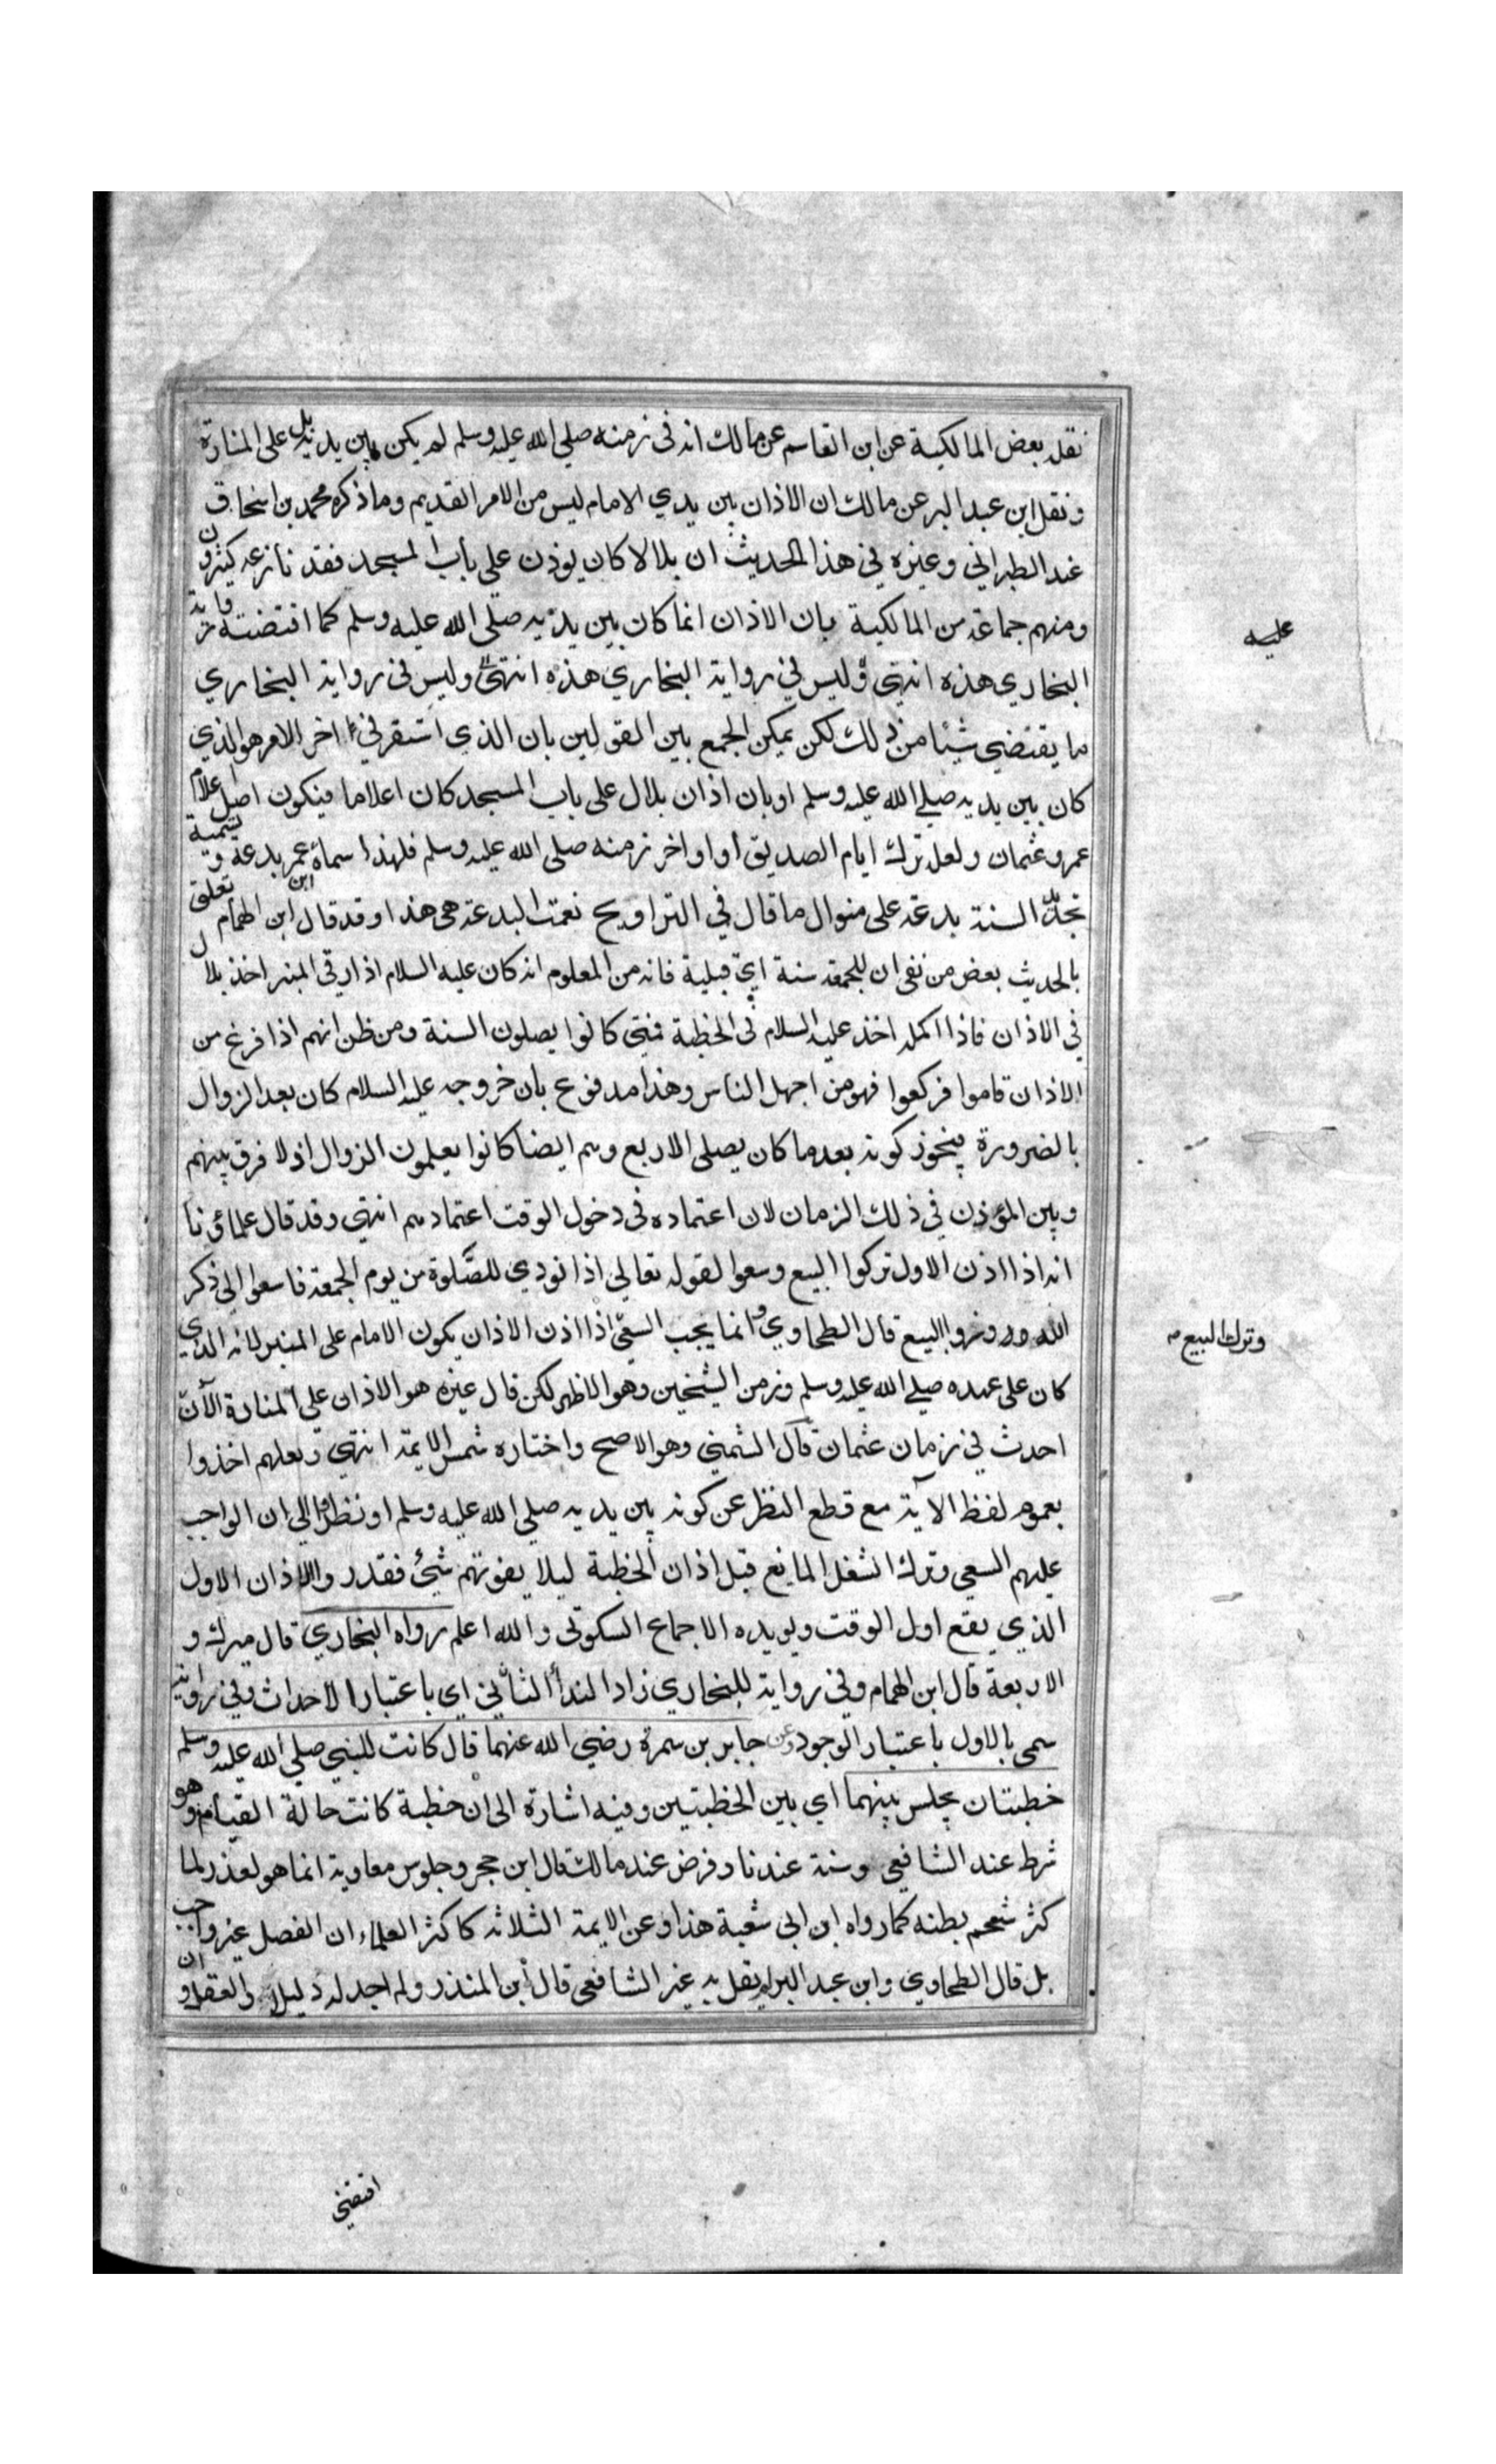 نقل بعض المالكية عن ابن القاسم عن مالك انه في زمنه صلي الله عليه وسلم لم يكن بين يديه بل على المنارة
ونقل ابن عبد البر عن مالك ان الاذان بين يدي الامام ليس من الامر القديم وما ذكره محمد بن اسحاق
عند الطبراني وغيره في هذا الحديث ان بلالا كان يوذن علي باب المسجد فقد نازعه كثيرون
ومنهم جماعة من المالكية بان الاذان انما كان بين يديه صلي الله عليه وسلم كما اقتضته رواية
عليه
البخاري هذه انتهي وليس في رواية البخاري هذه انتهى وليس في رواية البخاري
ما يقتضي شيئا من ذلك لكن يمكن الجمع بين القولين بان الذي استقر في اخر الامر هو الذي
كان بين يديه صلے الله عليه وسلم او بان اذان بلال على باب المسجد كان اعلاما فيكون اصل اعلام
عمر وعثمان ولعل ترك ايام الصديق او اواخر زمنه صلى الله عليه وسلم فلهذا سماه عمر بدعة وتسمية
تجدد السنة بدعة على منوال ما قال في التراويح نعمت البدعة هي هذا وقد قال ابن الهمام تعلق
بالحديث بعض من نفى ان للجمعة سنة اي قبلية فانه من المعلوم انه كان عليه السلام اذا رقي المنبر اخذ بلال
في الاذان فاذا اكمله اخذ عليه السلام في الخطبة فمتي كانوا يصلون السنة ومن ظن انهم اذا فرغ من
الاذان قاموا فركعوا فهو من اجهل الناس وهذا مدفوع بان خروجه عليه السلام كان بعد الزوال
بالضرورة فيجوز كونه بعد ما كان يصلى الاربع وهم ايضا كانوا يعلمون الزوال اذ لا فرق بينهم
وبين المؤذن في ذلك الزمان لان اعتماده في دخول الوقت اعتمادهم انتهي وقد قال علماؤنا
انه اذا اذن الاول تركوا البيع وسعوا لقوله تعالي اذا نودي للصلوة من يوم الجمعة فاسعوا إلى ذكر
الله وذروا البيع قال الطحاوي وانما يجب السعي اذا اذن الاذان يكون الامام على المنبر لانه الذي
وترك البيع
كان على عهده صلے الله عليه وسلم وزمن الشيخين وهو الاظهر لكن قال غيره هو الاذان على المنارة الآن
احدث في زمان عثمان قال الشمني وهو الاصح واختاره شمس الايمة انتهي ولعلهم اخذوا
بعموم لفظ الآية مع قطع النظر عن كونه بين يديه صلي الله عليه وسلم او نظروا الي ان الواجب
عليهم السعي وترك الشغل المانع قبل اذان الخطبة ليلا يفوتهم شئ فقدروا الاذان الاول
الذي يقع اول الوقت ويويده الاجماع السكوتي والله اعلم رواه البخاري قال ميرك و
الاربعة قال ابن الهمام وفي رواية للبخاري زاد الندأ الثاني اي باعتبار الاحداث وفي رواية
سمي بالاول باعتبار الوجود وعن جابر بن سمرة رضي الله عنهما قال كانت للنبي صلي الله عليه وسلم
خطبتان يجلس بينهما اي بين الخطبتين وفيه اشارة الى ان خطبة كانت حالة القيام وهو
شرط عند الشافعي وسنة عندنا وفرض عند مالك قال ابن حجر وجلوس معاوية انما هو لعذر لما
كثر شحم بطنه كما رواه ابن ابي شعبة هذا وعن الايمة الثلاثة كاكثر العلماء ان الفصل غير واجب
بل قال الطحاوي وابن عبد البر لم يقل به غير الشافعي قال ابن المنذر ولم اجد له دليلا والعقل وان
اقتضي